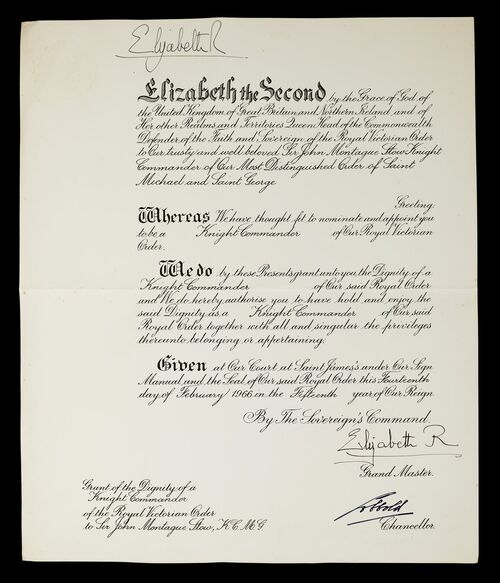 Elizabeth R
Elizabeth the Second by the Grace of God, of
the United Kingdom of Great Britain and Northern Ireland and of
Her other Realms and Territories Queen, Head of the Commonwealth,
Defender of the Faith and Sovereign of the Royal Victorian Order
to Our trusty and well beloved Sir John Montague Stow Knight
Commander of Our Most Distinguished Order of Saint
Michael and Saint George
Greeting,
Whereas We have thought fit to nominate and appoint you
to be a Knight Commander of Our Royal Victorian
Order.
We do by these Presents grant unto you the Dignity of a
Knight Commander of Our said Royal Order
and We do hereby authorise you to have hold and enjoy the
said Dignity as a Knight Commander of Our said
Royal Order together with all and singular the privileges
thereunto belonging or appertaining.
Given at Our Court at Saint James's under Our Sign
Manual and the Seal of Our said Royal Order this Fourteenth
day of February 1966 in the Fifteenth year of Our Reign.
By The Sovereign's Command.
Elizabeth R
Grand Master.
Grant of the Dignity of a
Knight Commander
of the Royal Victorian Order
to Sir John Montague Stow, K C M G
Cobbold
Chancellor.